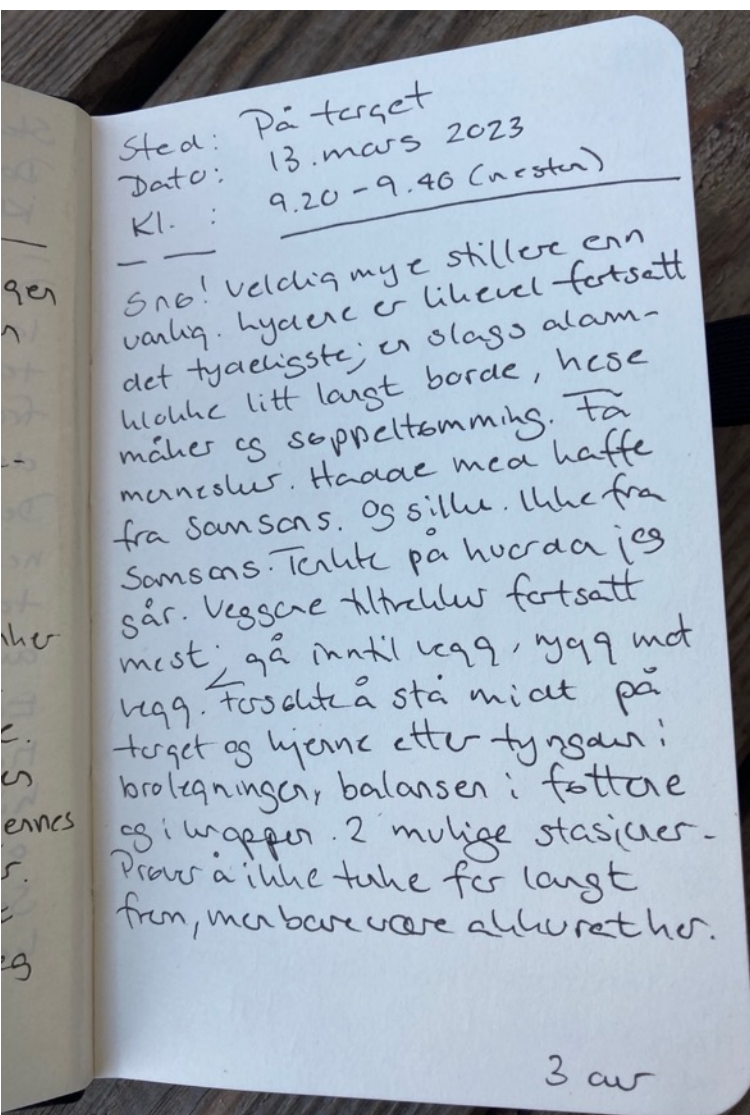 ger
n
--
ker
e.
es
ernes
r.
eg
Sted: På torget
Dato: 13. mars 2023
Kl. : 9.20 - 9.40 (nesten)
Snø! Veldig mye stillere enn
vanlig. Lydene er likevel fortsatt
det tydeligste; en slags alarm-
klokke litt langt borde, hese
måker og søppeltømming. Få
mennesker. Hadde med kaffe
fra Samsons. Og sillu. Ikke fra
Samsons. Tenkte på hvordan jeg
går. Veggene tiltrekker fortsatt
mest; gå inntil vegg, rygg mot
vegg. Forsøkte å stå midt på
torget og kjenne etter tyngden i
brolegningen, balansen i føttene
og i kroppen. 2 mulige stasjoner.
Prøver å ikke tenke for langt
frem, men bare være akkurat her.
3 av